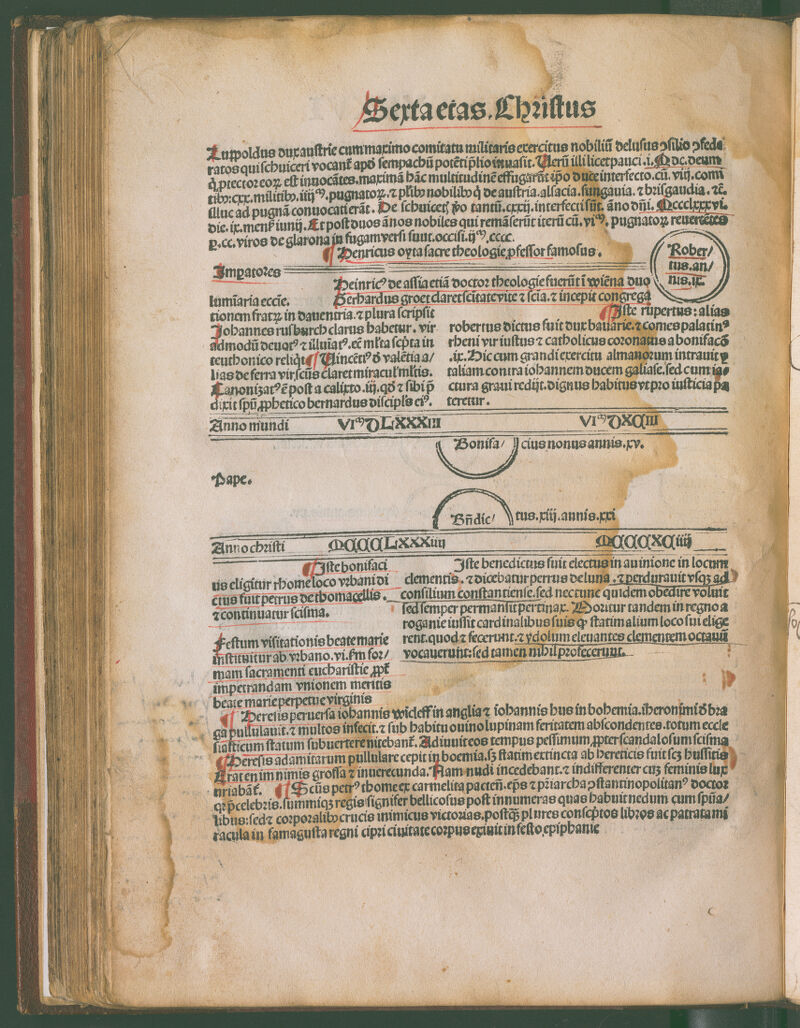 Sexta etas. Chꝛistus
Lupoldus dux austrie cum maximo comitatu militaris exercitus nobiliũ delusus ꝯsilio ꝯfede
ratos qui schuiceri vocant᷑ apd̕ sempachũ potẽtiphio inuasit. Uerũ illi licet pauci .i. M.dc. deum
ꝓtectoꝛẽ eoꝝ est inuocãtes, maximã hãc multitudinẽ effugarũt ipo duce interfecto. cũ. viij. comi
tibꝰ. cxx. militibꝰ. iiijᵐ. pugnatoꝝ. ⁊ plibꝰ nobilibꝰ q̇ de austria. alsacia. sungauia. ⁊ bꝛisgaudia. ⁊c.
illuc ad pugnã conuocati erãt. De schuicet̕ ꝟo tantũ. cxxij. interfecti sũt. ãno dñi. Mccclxxxvi.
die. ix. mens̕ iunij. Et post duos ãnos nobiles qui remãserũt iterũ cũ. viᵐ. pugnatoꝝ reuertẽtes
p. cc. viros de glarona in fugam versi sunt. occisi. ijᵐ. cccc.
¶ Henricus oyta sacre theologie ꝓfessoꝛ famosus.
Rober/
tus. an/
nis. ix.
Impatoꝛes
Heinricꝰ de assia etiã doctoꝛ theologie fuerũt ĩ wiẽna duo
lumĩaria eccĩe.
Gerhardus groet claret scitate vite ⁊ scia. ⁊ incepit congrega
tionem fratꝝ in dauentria. ⁊ plura scripsit
Johannes rusburch clarus habetur. vir
admodũ deuotꝰ ⁊ illuĩatꝰ. eĩ ml̕ta scp̃ta in
teuthonico reliq̇t ¶ Uincẽtiꝰ ð valẽtia a/
lias de ferra vir scũs claret miracul̕ ml̕tis.
Canonizatꝰ ẽ post a calixto. iij. qð ⁊ sibi p̃
dixit spũ ꝓphetico bernardus discipl̕s eiꝰ.
¶ Iste rupertus: alias
robertus dictus fuit dux bauarie. ⁊ comes palatinꝰ
rheni vir iustus ⁊ catholicus coꝛonatus a bonifacõ
.ix. Hic cum grandi exercitu almanoꝛum intrauit y
taliam contra iohannem ducem galiase. sed cum ia
ctura graui redijt. dignus habitus vt pro iusticia pa
teretur.
Anno mundi VIᵐDLXXXIII VIᵐDXCIII
Bonifa/ cius nonus annis. xv.
Pape.
Bñdic/ tus. xiij. annis. xxi
Anno chꝛisti MCCCLXXXIIII MCCCXCIIIJ
¶ Iste bonifaci
us eligitur rhome loco vꝛbani di
ctus fuit petrus de thomacellis.
⁊ continuatur scisma.
Festum visitationis beate marie
instituitur ab vꝛbano. vi. sm̃ foꝛ/
mam sacramenti eucharistie ꝓpt̕
impetrandam vnionem meritis
beate marie perpetue virginis
Iste benedictus fuit electus in auinione in locum
clementis. ⁊ dicebatur petrus de luna. ⁊ perdurauit vsqꝫ ad
consilium constantiense. sed nec tunc quidem obedire voluit
sed semper permansit pertinax. Moꝛitur tandem in regno a
rogonie iussit cardinalibus suis qꝫ statim alium loco sui elige
rent. quod ⁊ fecerunt. ⁊ ydolum eleuantes clementem octauũ
vocauerunt: sed tamen nihil profecerunt.
¶ Heresis peruersa iohannis wicleff in anglia ⁊ iohannis hus in bohemia. iheronimi ð bꝛa
ga pullulauit. ⁊ multos infecit. ⁊ sub habitu ouino lupinam feritatem abscondentes. totum eccle
siasticum statum subuertere nitebant᷑. Adiuuit eos tempus pessimum, ꝓpter scandalosum scisma
¶ Heresis adamitarum pullulare cepit in boemia. sꝫ statim extincta ab hereticis fuit scꝫ hussitis
Erat enim nimis grossa ⁊ inuerecunda. Nam nudi incedebant. ⁊ indifferenter cuꝫ feminis lux
uriabãt᷑. ¶ Scũs petrꝰ thome ex carmelita pacteñ. ep̃s ⁊ pr̃iarcha ꝯstantinopolitanꝰ doctoꝛ
qꝫ p̃celebris. summiqꝫ regis signifer bellicosus post innumeras quas habuit nedum cum spũa/
libus: sed ⁊ coꝛpoꝛalibꝰ crucis inimicus victoꝛias. postqꝫ plures conscp̃tos libꝛos ac patrata mi
racula in famagusta regni cipri ciuitate coꝛpus exiuit in festo epiphanie